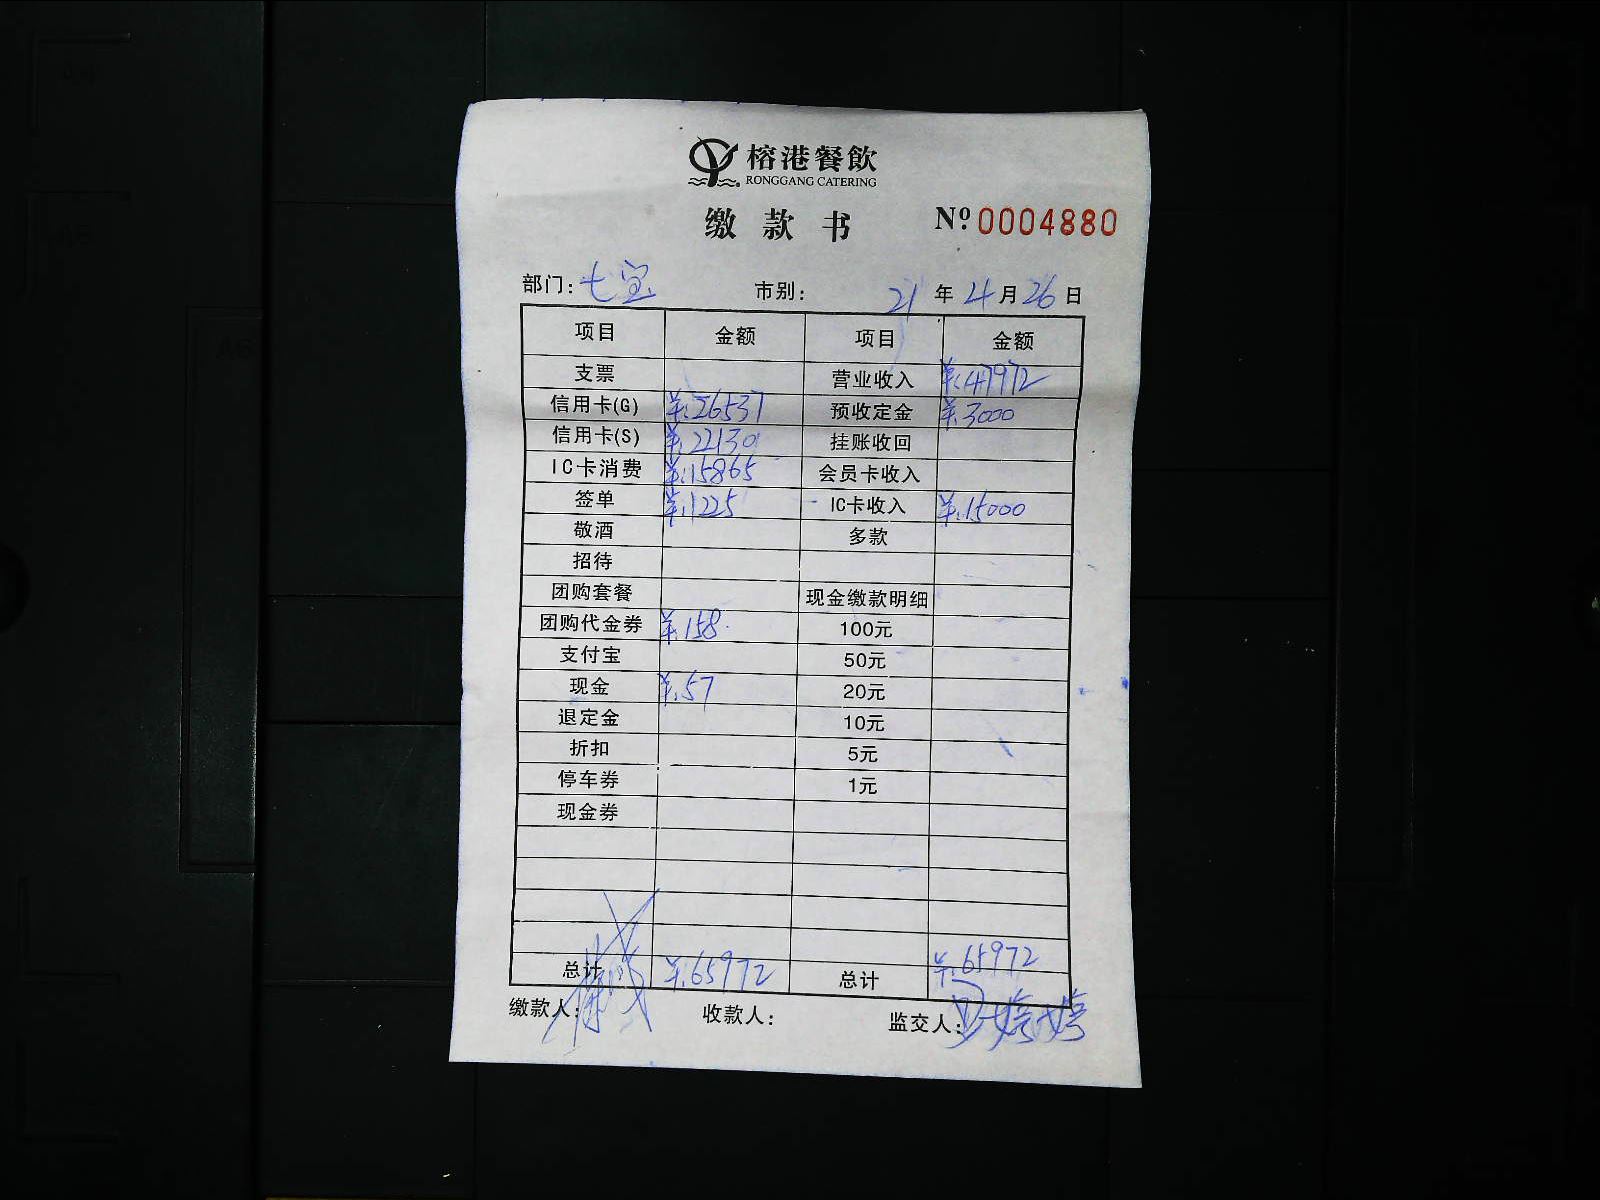 榕港餐飲
RONGGANG CATERING
缴款书 Nº 0004880
部门: 七宝 市别: 21 年 4 月 26 日
项目 金额 项目 金额
支票 营业收入 ¥:47972
信用卡(G) ¥:26537 预收定金 ¥:3000
信用卡(S) ¥:22130 挂账收回
IC卡消费 ¥:15865 会员卡收入
签单 ¥:1225 IC卡收入 ¥:15000
敬酒 多款
招待
团购套餐 现金缴款明细
团购代金券 ¥:158 100元
支付宝 50元
现金 ¥:57 20元
退定金 10元
折扣 5元
停车券 1元
现金券
总计 ¥:65972 总计 ¥:65972
缴款人: 收款人: 监交人: